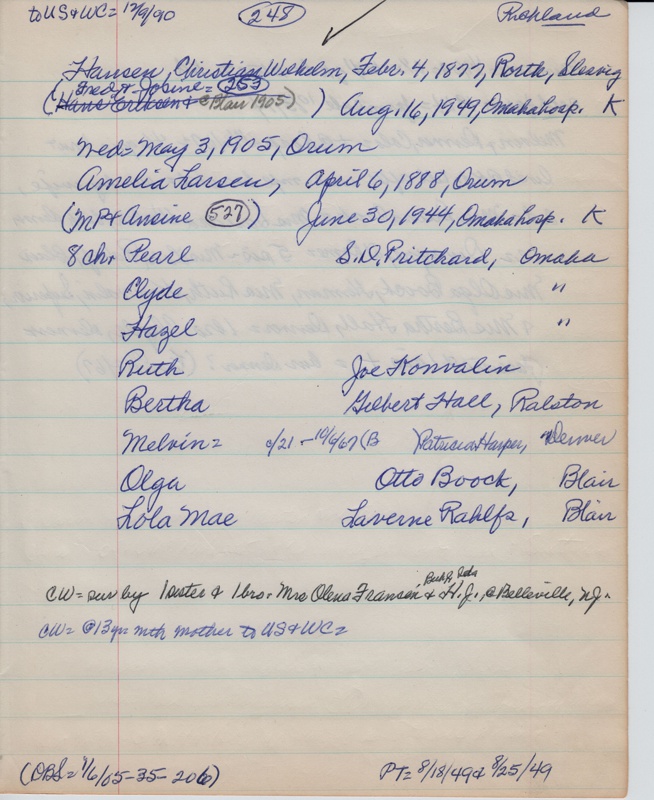 to US & WC = 12/9/90 (248) Richland
Hansen, Christian Wilhelm, Febr. 4, 1877, Rorth, Slesvig
(Fred & Josine = (253)
Hans Erikson & @ Blair 1905) ) Aug. 16, 1949, Omaha hosp. K
Wed = May 3, 1905, Orum
Amelia Larsen, April 6, 1888, Orum
(MP & Ansine (527)) June 30, 1944, Omaha hosp. K
8 ch. Pearl S.D. Pritchard, Omaha
Clyde "
Hazel "
Ruth Joe Konvalin
Bertha Gilbert Hall, Ralston
Melvin = c/21 - 10/6/67 (B ) Patricia Harper, Denver
Olga Otto Boock, Blair
Lola Mae Laverne Rahlfs, Blair
CW = sur by 1 sister & 1 bro. Mrs Olena Fransen & H.J., @ Belleville, NJ.
CW = @ 13 yr. with mother to US & WC =
(DBS = 1/6/05 - 35 - 206) PT = 8/18/49 & 8/25/49